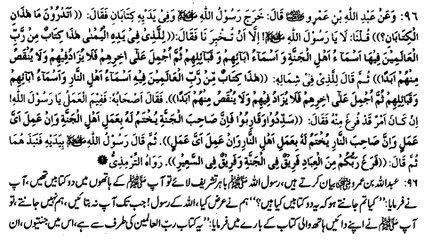 ٩٦: وَعَنْ عَبْدِ اللّٰهِ بْنِ عَمْرٍو ﷺ قَالَ: خَرَجَ رَسُوْلُ اللّٰهِ ﷺ وَفِيْ يَدَيْهِ كِتَابَانِ فَقَالَ: ((اَتَدْرُوْنَ مَا هٰذَانِ
الْكِتَابَانِ؟)) قُلْنَا: لَا يَا رَسُوْلَ اللّٰهِ! اِلَّا اَنْ تُخْبِرَنَا فَقَالَ: ((لِلَّذِيْ فِيْ يَدِهِ الْيُمْنٰى هٰذَا كِتَابٌ مِنْ رَّبِّ
الْعَالَمِيْنَ فِيْهَا اَسْمَاءُ اَهْلِ الْجَنَّةِ وَاَسْمَاءُ اٰبَائِهِمْ وَقَبَائِلِهِمْ ثُمَّ اُجْمِلَ عَلٰى اٰخِرِهِمْ فَلَا يُزَادُ فِيْهِمْ وَلَا يُنْقَصُ
مِنْهُمْ اَبَدًا)). ثُمَّ قَالَ لِلَّذِيْ فِيْ شِمَالِهِ: ((هٰذَا كِتَابٌ مِّنْ رَّبِّ الْعَالَمِيْنَ فِيْهِ اَسْمَاءُ اَهْلِ النَّارِ وَاَسْمَاءُ اٰبَائِهِمْ
وَقَبَائِلِهِمْ ثُمَّ اُجْمِلَ عَلٰى اٰخِرِهِمْ فَلَا يُزَادُ فِيْهِمْ وَلَا يُنْقَصُ مِنْهُمْ اَبَدًا)). فَقَالَ اَصْحَابُهُ: فَفِيْمَ الْعَمَلُ يَا رَسُوْلَ اللّٰهِ!
اِنْ كَانَ اَمْرٌ قَدْ فُرِغَ مِنْهُ فَقَالَ: ((سَدِّدُوْا وَقَارِبُوْا فَاِنَّ صَاحِبَ الْجَنَّةِ يُخْتَمُ لَهُ بِعَمَلِ اَهْلِ الْجَنَّةِ وَاِنْ عَمِلَ اَيَّ
عَمَلٍ وَاِنَّ صَاحِبَ النَّارِ يُخْتَمُ لَهُ بِعَمَلِ اَهْلِ النَّارِ وَاِنْ عَمِلَ اَيَّ عَمَلٍ)). ثُمَّ قَالَ رَسُوْلُ اللّٰهِ ﷺ بِيَدَيْهِ فَنَبَذَهُمَا
ثُمَّ قَالَ: ((فَرَغَ رَبُّكُمْ مِنَ الْعِبَادِ فَرِيْقٌ فِي الْجَنَّةِ وَفَرِيْقٌ فِي السَّعِيْرِ)). رَوَاهُ التِّرْمِذِيُّ
٩٦: عبداللہ بن عمرو بیان کرتے ہیں، رسول اللہ ﷺ باہر تشریف لائے تو آپ ﷺ کے ہاتھوں میں دو کتابیں تھیں، آپ
نے فرمایا: ''کیا تم جانتے ہو کہ یہ دو کتابیں کیا ہیں؟'' ہم نے عرض کیا، اللہ کے رسول! جب تک آپ نہ بتائیں، ہم نہیں جانتے، تو
آپ ﷺ نے اپنے دائیں ہاتھ والی کتاب کے بارے میں فرمایا: ''یہ کتاب رب العالمین کی طرف سے ہے، اس میں جنتیوں، ان